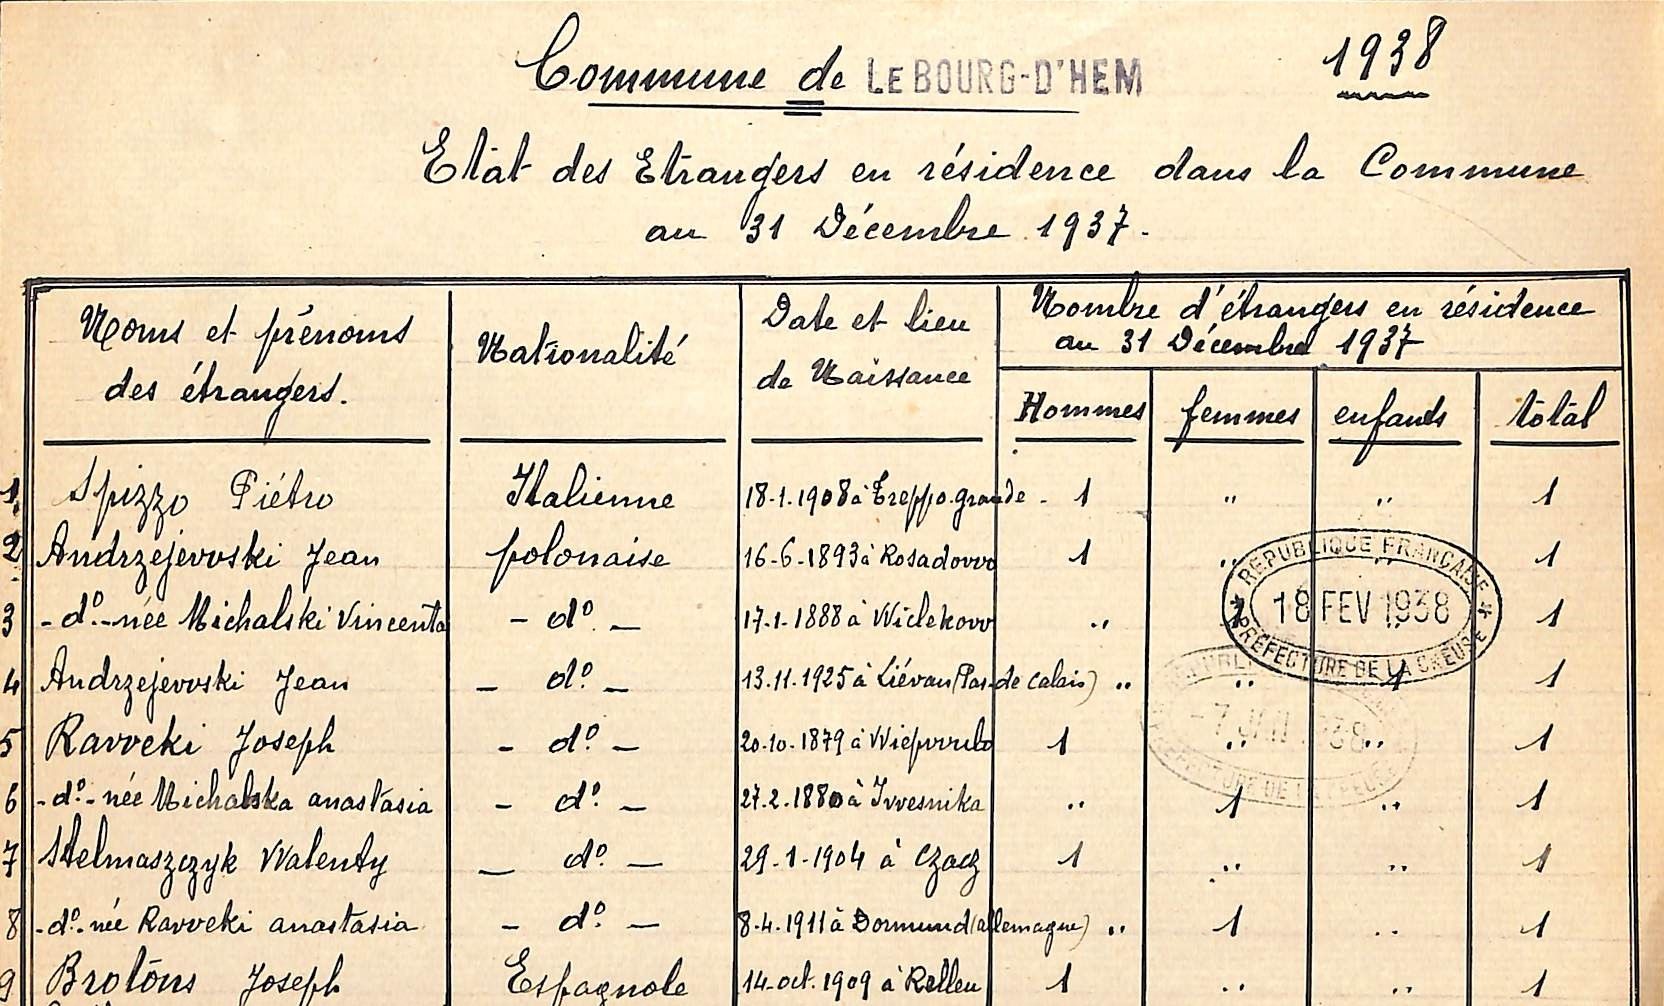 1938
Commune de LE BOURG-D'HEM
Etat des Etrangers en résidence dans la Commune
au 31 Décembre 1937.
Noms et prénoms
des étrangers.
Nationalité
Date et lieu
de Naissance
Nombre d'étrangers en résidence
au 31 Décembre 1937
Hommes femmes enfants total
1 Spizzo Piétro Italienne 18-1-1908 à Treppo grande - 1 " " 1
2 Andrzejevvski Jean polonaise 16-6-1893 à Rosadovvo 1 " " 1
3 -d°- née Michalski Vincenta - d° - 17-1-1888 à Wiclekovo " 1 " 1
4 Andrzejevvski Jean - d° - 13.11.1925 à Liévan (Pas-de calais) " " 1 1
5 Ravveki Joseph - d° - 20-10-1879 à 1 " " 1
6 -d°- née Michalska anastasia - d° - 27.2.1880 à Ivvesnika " 1 " 1
7 Stelmaszczyk VValenty - d° - 29-1-1904 à Czacz 1 " " 1
8 -d°- née Ravveki anastasia - d° - 8-4-1911 à Dormund (allemagne) " 1 " 1
9 Brotons Joseph Espagnole 14-oct. 1909 à Relleu 1 " " 1
* RÉPUBLIQUE FRANÇAISE *
18 FEV 1938
PRÉFECTURE DE LA CREUSE
-7 JAN 1938
PRÉFECTURE DE LA CREUSE